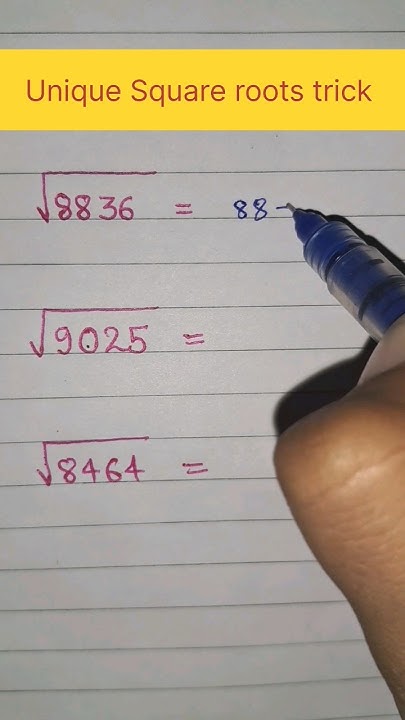 Unique Square roots trick
√8836 = 88 -
√9025 =
√8464 =